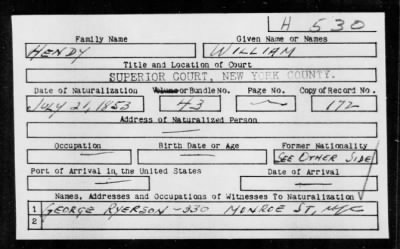 H 530
Family Name Given Name or Names
HENDY WILLIAM
Title and Location of Court
SUPERIOR COURT, NEW YORK COUNTY.
Date of Naturalization Volume or Bundle No. Page No. Copy of Record No.
JULY 21, 1853 43 — 172
Address of Naturalized Person
—
Occupation Birth Date or Age Former Nationality
— — SEE OTHER SIDE
Port of Arrival in the United States Date of Arrival
— —
Names, Addresses and Occupations of Witnesses To Naturalization
1 GEORGE RYERSON - 330 MONROE ST, NYC
2